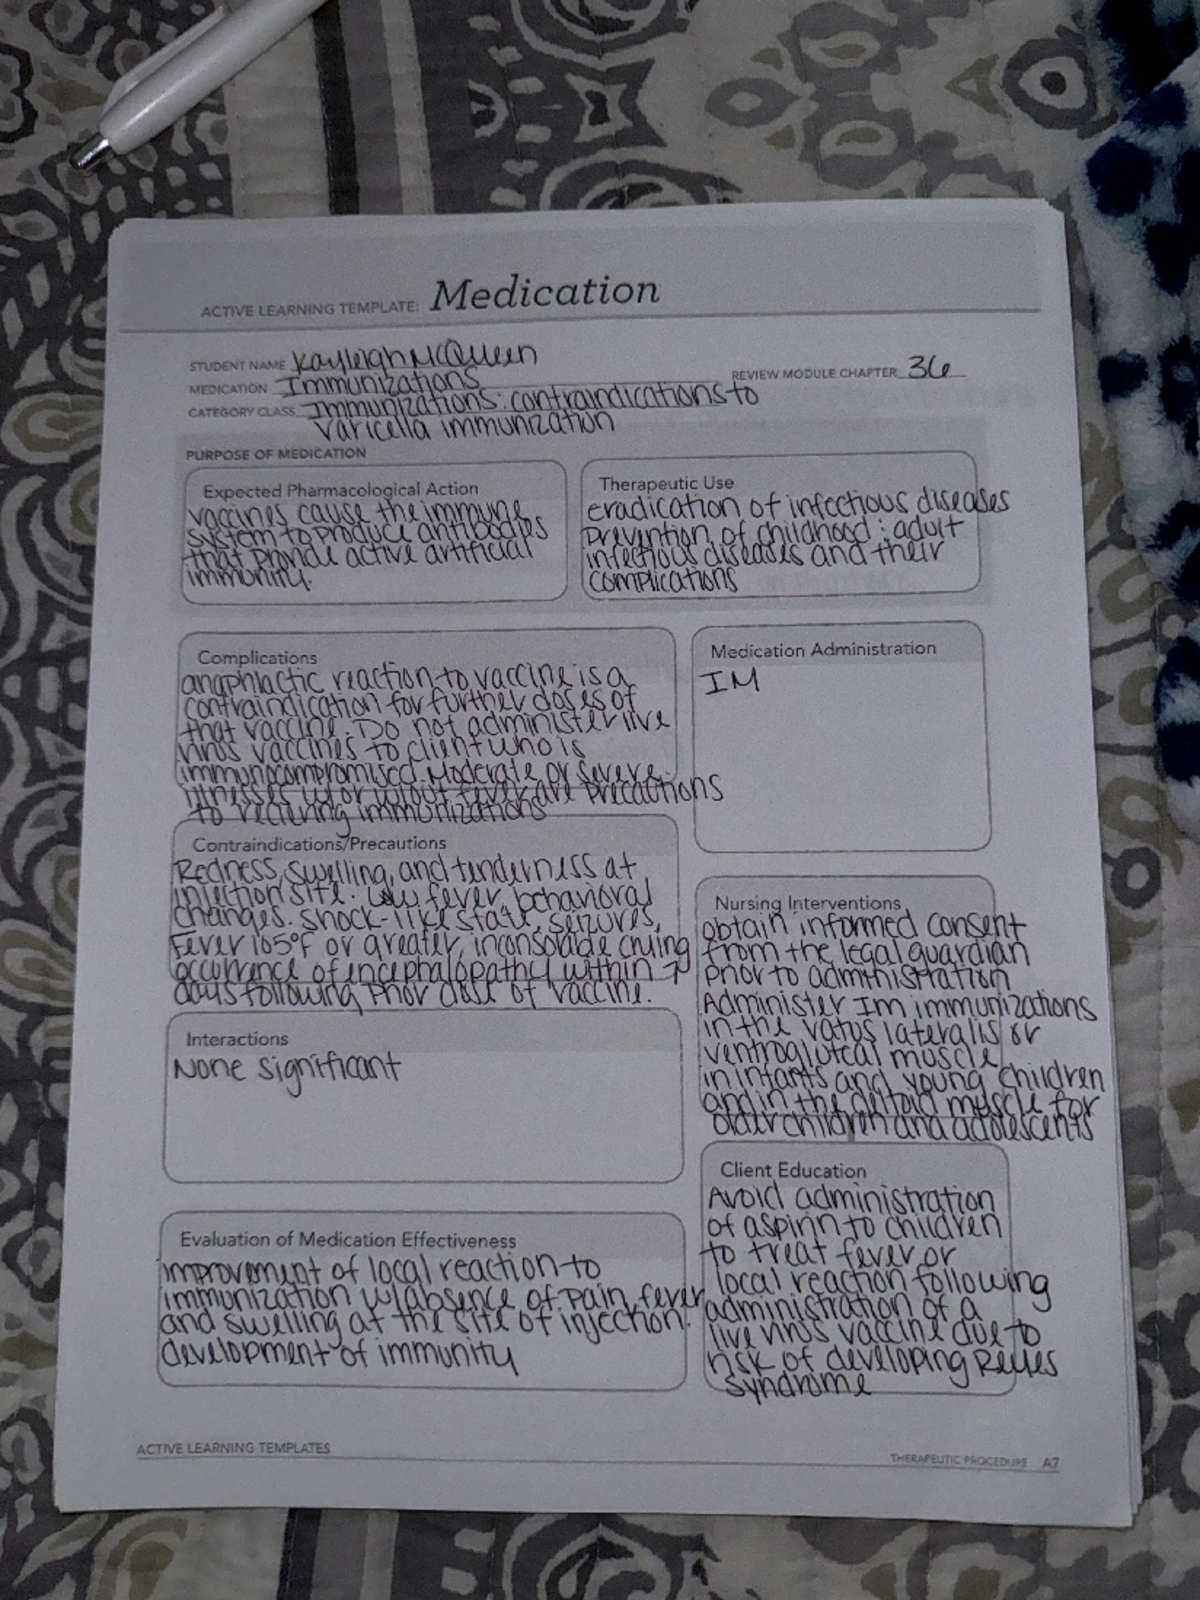 ACTIVE LEARNING TEMPLATE: Medication
STUDENT NAME Kayleigh McQueen
MEDICATION Immunizations
REVIEW MODULE CHAPTER 36
CATEGORY CLASS Immunizations: contraindications to
varicella immunization
PURPOSE OF MEDICATION
Expected Pharmacological Action
vaccines cause the immune
system to produce antibodies
that provide active artificial
immunity.
Therapeutic Use
eradication of infectious diseases
prevention of childhood : adult
infectious diseases and their
complications
Complications
anaphlactic reaction to vaccine is a
contraindication for further doses of
that vaccine. Do not administer live
virus vaccines to client who is
immunocompromised. Moderate or severe
illnesses w/or w/out fever are precautions
to recieving immunizations
Medication Administration
IM
Contraindications/Precautions
Redness, swelling, and tenderness at
injection site. Low fever, behavioral
changes. shock-like state, seizures,
Fever 105°F or greater, inconsolable crying
occurrence of encephalopathy within 7
days following prior dose of vaccine.
Nursing Interventions
obtain informed consent
from the legal guardian
prior to administration
Administer Im immunizations
in the vatus lateralis or
ventrogluteal muscle
in infants and young children
and in the deltoid muscle for
older children and adolescents
Interactions
None significant
Client Education
Avoid administration
of aspirin to children
to treat fever or
local reaction following
administration of a
live virus vaccine due to
risk of developing Reyes
syndrome
Evaluation of Medication Effectiveness
improvement of local reaction to
immunization w/ absence of pain, fever,
and swelling at the site of injection.
development of immunity
ACTIVE LEARNING TEMPLATES
THERAPEUTIC PROCEDURE A7